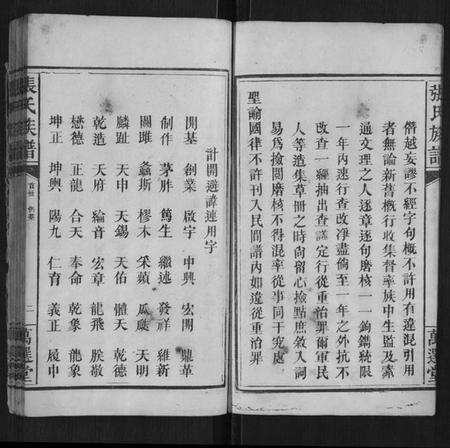 張氏族譜
萬選堂
僭越妄謬不經字句概不許用有違混引用
者無論新舊概行收集督率族中生監及素
通文理之人逐章逐句磨核一一鉤鐫統限
一年內速行查改淨盡倘至一年之外抗不
改查一經抽出查議定行從重治罪爾軍民
人等造集草冊之時向留心檢點庶敘入詞
易為撿閱磨核不得混率從事同干究處
聖諭國律不許刊入民間譜內如違從重治罪
計開避諱連用字
開基 創業 啟字 中興 宏開
制作 茅胙 篤生 繼述 發祥 維新
關雎 螽斯 樛木 采蘋 瓜瓞 天明
麟趾 天申 天錫 天佑 體天 乾德
乾造 天府 綸音 宏章 龍飛 朕敬
懋德 正龍 合天 奉命 乾象 龍象
坤正 坤輿 陽九 仁育 義正 履中
張氏族譜
首卷
二
萬選堂